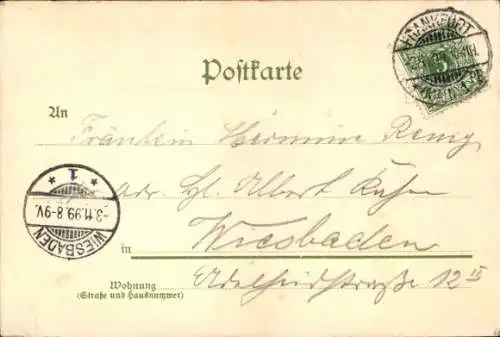 FRANKFURT
Postkarte
An
Fräulein Hermine Remy
adr. Hl. Albert Kühn
Wiesbaden
in
Adelheidstraße 12 II
Wohnung
(Straße und Hausnummer)
1
3.11.99.8-9V.
WIESBADEN